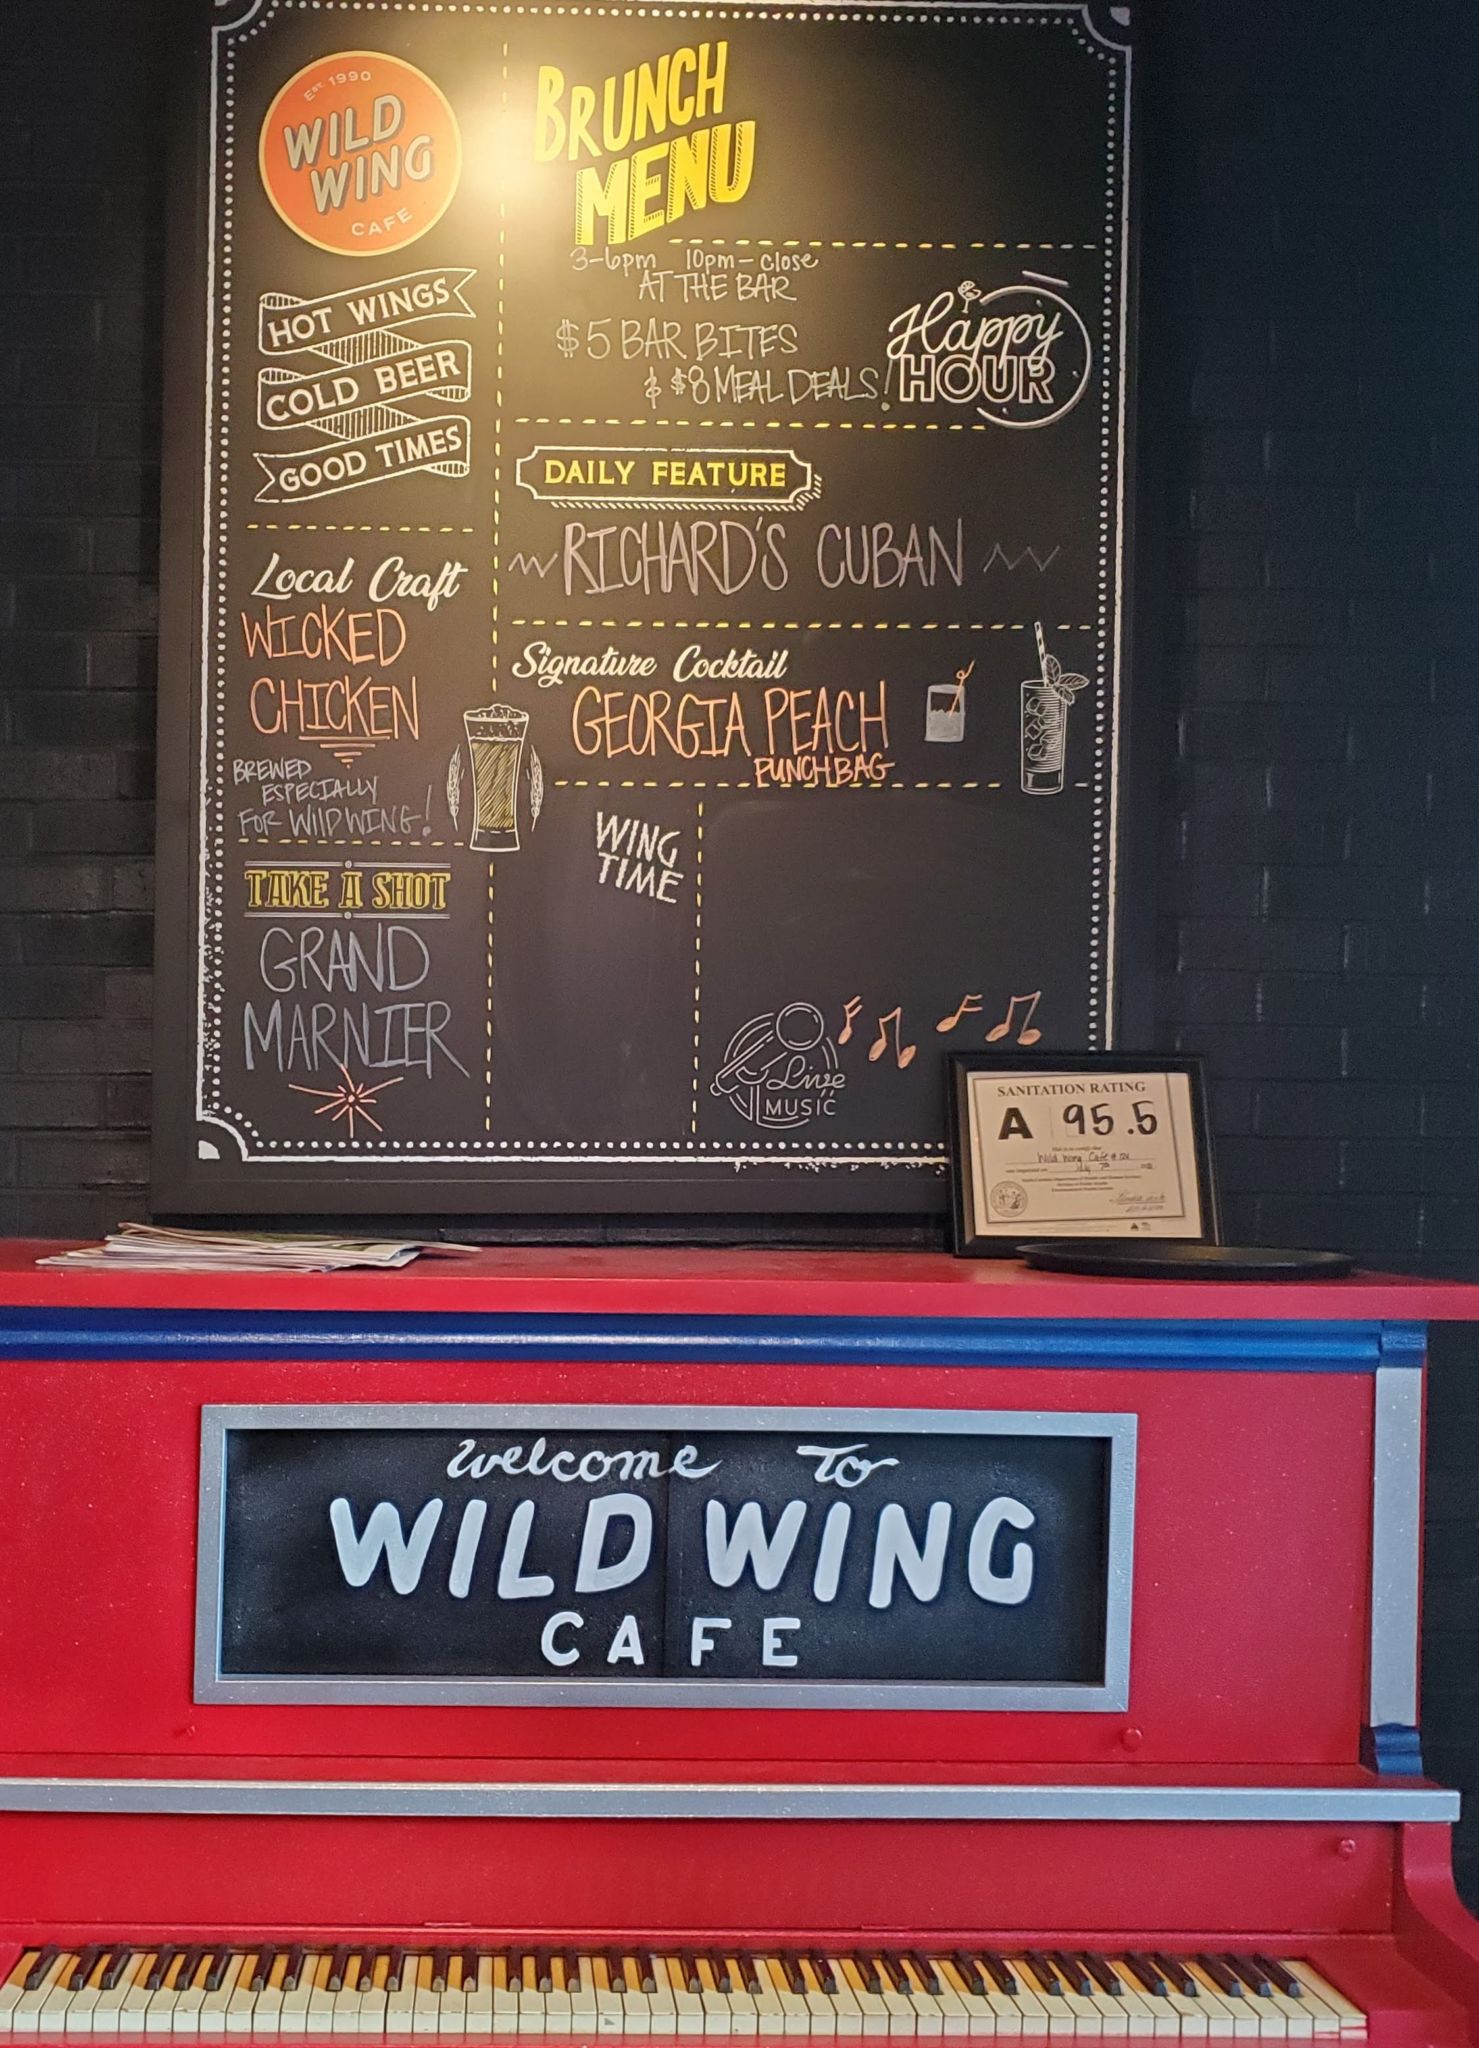 EST. 1990
WILD
WING
CAFE
HOT WINGS
COLD BEER
GOOD TIMES
Local Craft
WICKED
CHICKEN
BREWED
ESPECIALLY
FOR WILD WING!
TAKE A SHOT
GRAND
MARNIER
BRUNCH
MENU
3-6pm 10pm-close
AT THE BAR
$5 BAR BITES
& $8 MEAL DEALS!
Happy
HOUR
DAILY FEATURE
RICHARD'S CUBAN
Signature Cocktail
GEORGIA PEACH
PUNCHBAG
WING
TIME
Live
MUSIC
SANITATION RATING
A 95.5
Wild Wing Cafe
July 7th
welcome To
WILD WING
CAFE